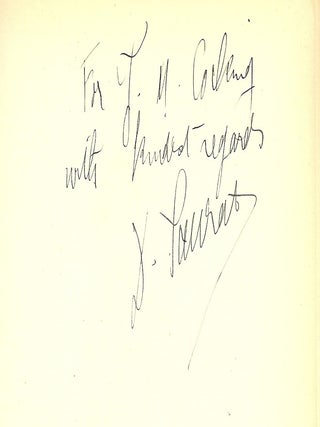 For J. M. Cocking
with kindest regards
D. Saurat